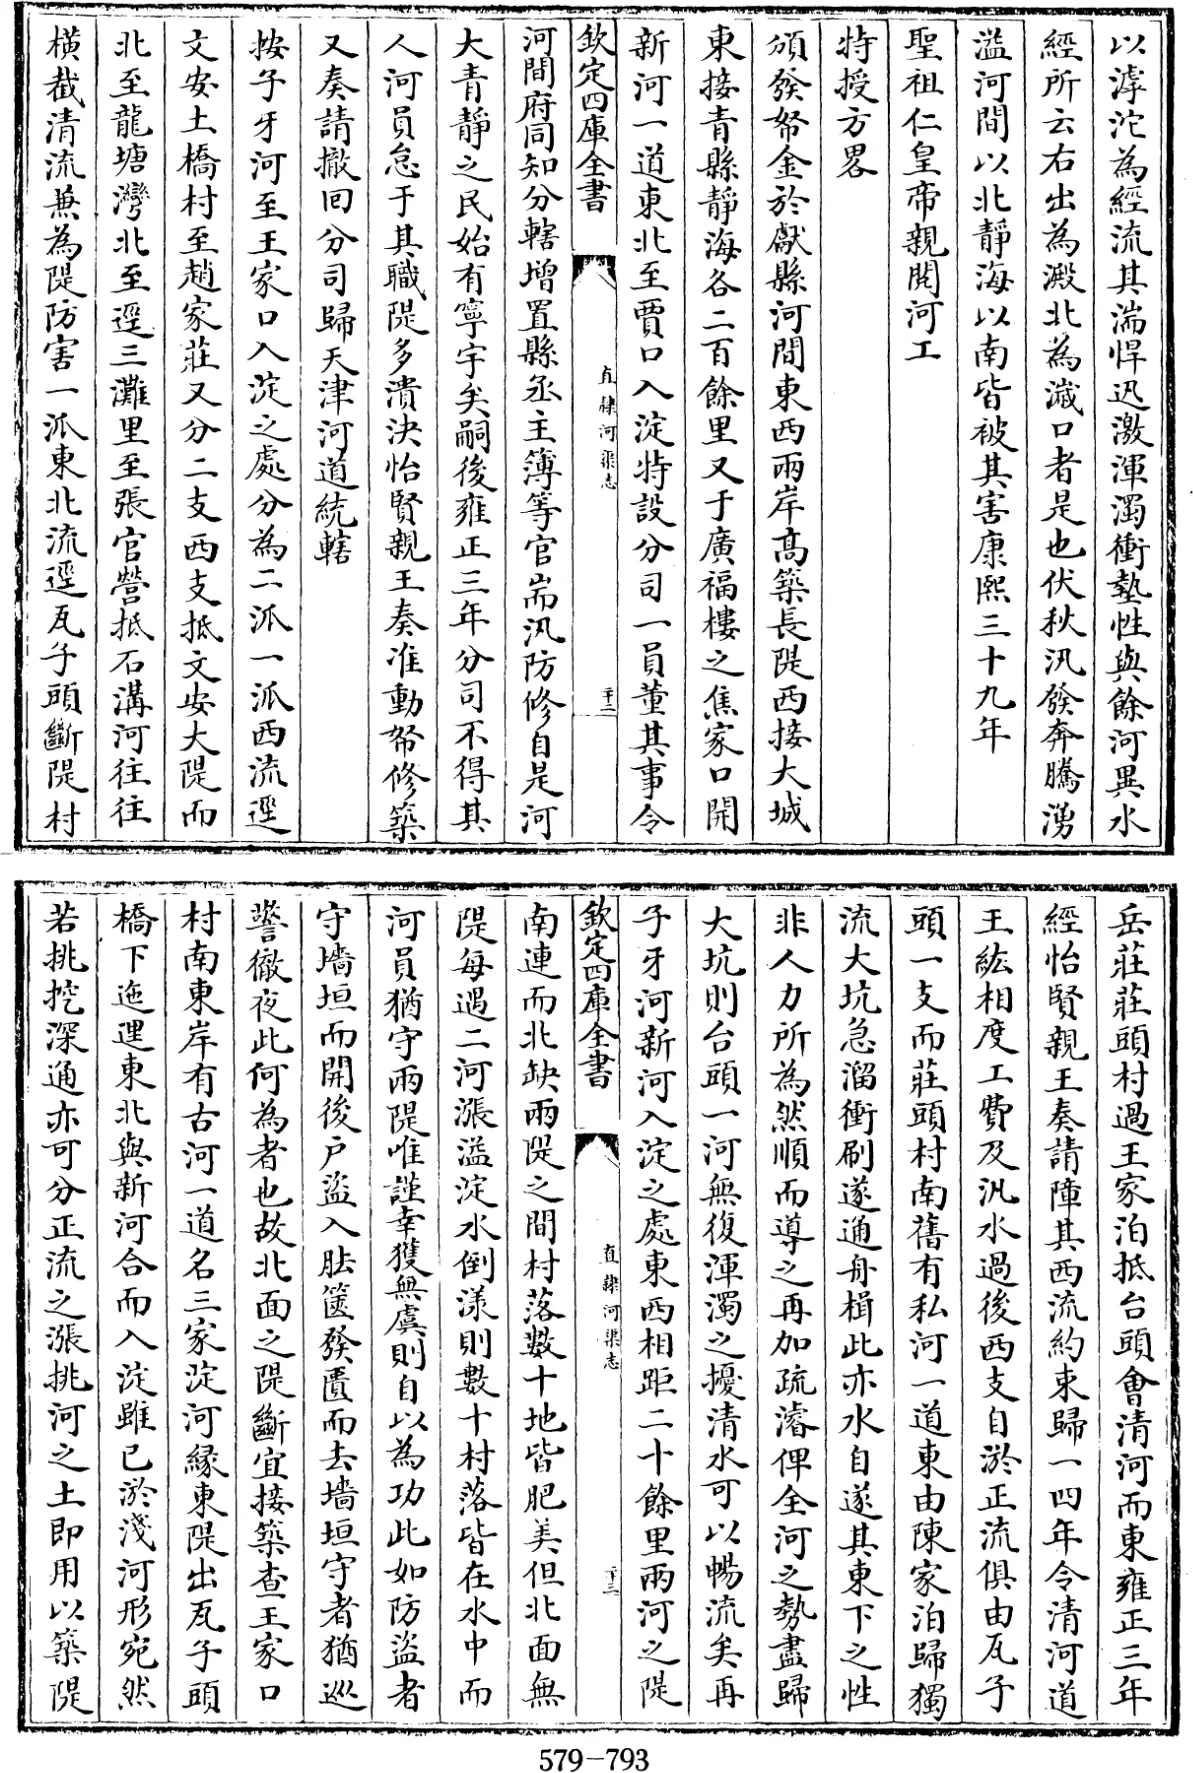 以滹沱為經流其湍悍迅激渾濁衝墊性與餘河異水
經所云右出為澱北為減口者是也伏秋汛發奔騰湧
溢河間以北靜海以南皆被其害康熙三十九年
聖祖仁皇帝親閱河工
特授方畧
頒發帑金於獻縣河間東西兩岸髙築長隄西接大城
東接青縣靜海各二百餘里又于廣福樓之焦家口開
新河一道東北至賈口入淀特設分司一員董其事令
欽定四庫全書
直隸河渠志
十二
河間府同知分轄增置縣丞主簿等官耑汛防修自是河
大青靜之民始有寧宇矣嗣後雍正三年分司不得其
人河員怠于其職隄多潰決怡賢親王奏准動帑修築
又奏請撤回分司歸天津河道統轄
按子牙河至王家口入淀之處分為二派一派西流逕
文安土橋村至趙家莊又分二支西支抵文安大隄而
北至龍塘灣北至逕三灘里至張官營抵石溝河往往
橫截清流兼為隄防害一派東北流逕瓦子頭斷隄村
岳莊莊頭村過王家泊抵台頭會清河而東雍正三年
經怡賢親王奏請障其西流約束歸一四年令清河道
王紘相度工費及汛水過後西支自淤正流俱由瓦子
頭一支而莊頭村南舊有私河一道東由陳家泊歸獨
流大坑急溜衝刷遂通舟楫此亦水自遂其東下之性
非人力所為然順而導之再加疏濬俾全河之勢盡歸
大坑則台頭一河無復渾濁之擾清水可以暢流矣再
子牙河新河入淀之處東西相距二十餘里兩河之隄
欽定四庫全書
直隸河渠志
十三
南連而北缺兩隄之間村落數十地皆肥美但北面無
隄每遇二河漲溢淀水倒漾則數十村落皆在水中而
河員猶守兩隄唯謹幸獲無虞則自以為功此如防盜者
守墻垣而開後户盜入胠篋發匱而去墻垣守者猶巡
警徹夜此何為者也故北面之隄斷宜接築查王家口
村南東岸有古河一道名三家淀河緣東隄出瓦子頭
橋下迤逕東北與新河合而入淀雖已淤淺河形宛然
若挑挖深通亦可分正流之漲挑河之土即用以築隄
579-793